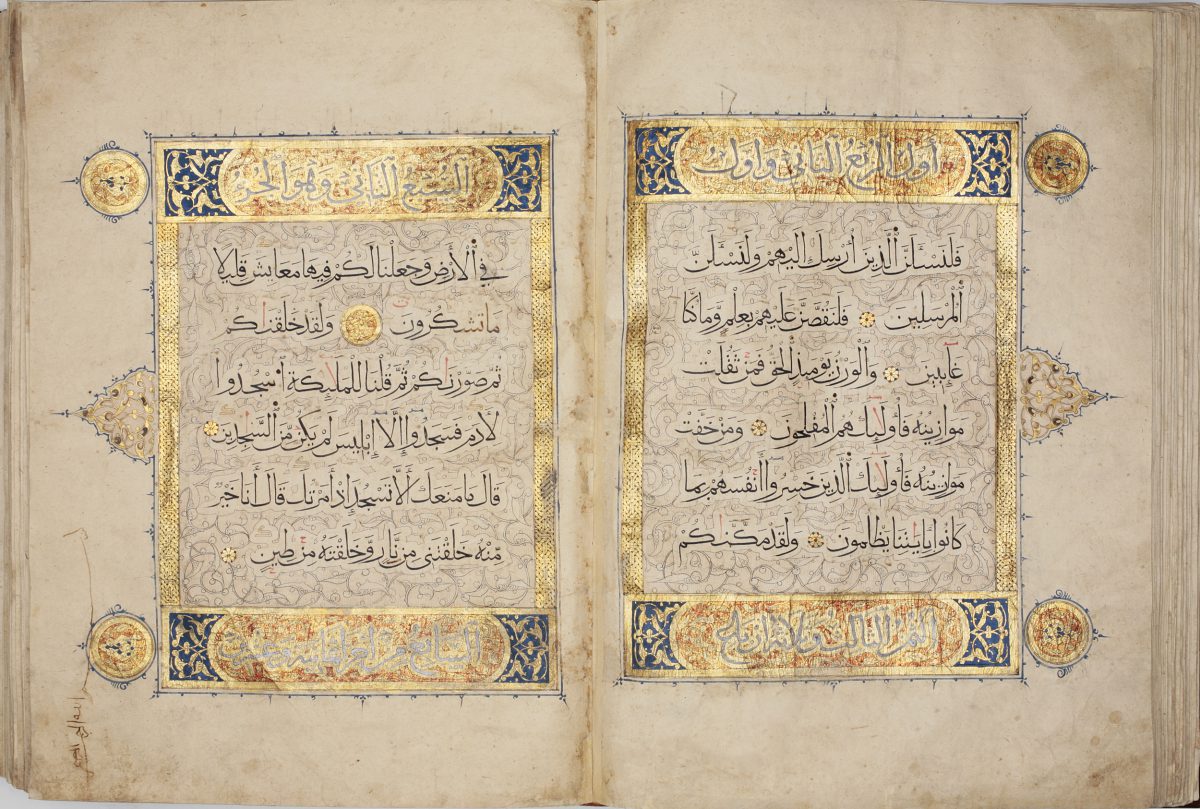 أول الربع الثاني وأول
فَلَنَسْئَلَنَّ ٱلَّذِينَ أُرْسِلَ إِلَيْهِمْ وَلَنَسْئَلَنَّ
ٱلْمُرْسَلِينَ فَلَنَقُصَّنَّ عَلَيْهِمْ بِعِلْمٍ وَّمَا كُنَّا
غَآئِبِينَ وَٱلْوَزْنُ يَوْمَئِذٍ ٱلْحَقُّ فَمَنْ ثَقُلَتْ
مَوَازِينُهُ فَأُولَٰئِكَ هُمُ ٱلْمُفْلِحُونَ وَمَنْ خَفَّتْ
مَوَازِينُهُ فَأُولَٰئِكَ ٱلَّذِينَ خَسِرُوٓا أَنْفُسَهُمْ بِمَا
كَانُوا بِـَٔايَٰتِنَا يَظْلِمُونَ وَلَقَدْ مَكَّنَّٰكُمْ
الثمن الثالث وثلاثة أرباع
السبع الثاني وهو الجزء
فِي ٱلْأَرْضِ وَجَعَلْنَا لَكُمْ فِيهَا مَعَايِشَ قَلِيلًا
مَا تَشْكُرُونَ وَلَقَدْ خَلَقْنَٰكُمْ
ثُمَّ صَوَّرْنَٰكُمْ ثُمَّ قُلْنَا لِلْمَلَٰئِكَةِ ٱسْجُدُوا
لِأَدَمَ فَسَجَدُوٓا إِلَّآ إِبْلِيسَ لَمْ يَكُنْ مِّنَ ٱلسَّٰجِدِينَ
قَالَ مَا مَنَعَكَ أَلَّا تَسْجُدَ إِذْ أَمَرْتُكَ قَالَ أَنَا خَيْرٌ
مِّنْهُ خَلَقْتَنِي مِنْ نَّارٍ وَّخَلَقْتَهُ مِنْ طِينٍ
السابع من أجزاء